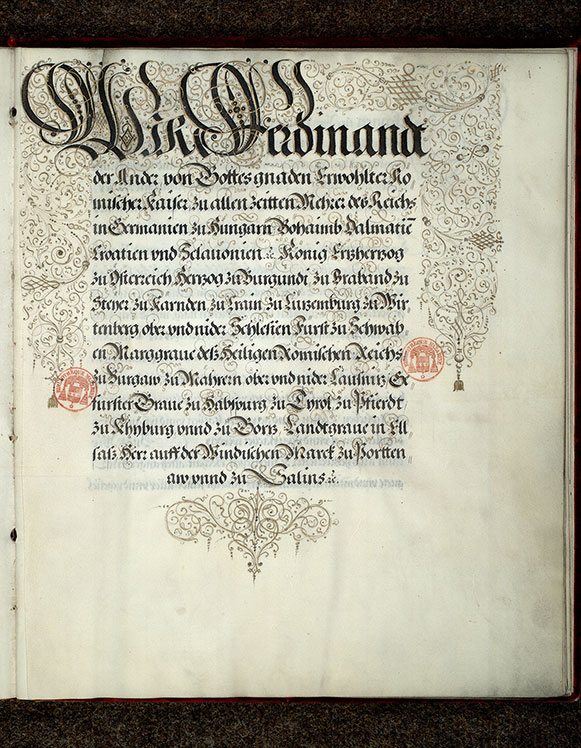 Wir Ferdinandt
der Ander von Gottes gnaden Erwöhlter Rö
mischer Kaiser zu allen zeitten Mehrer des Reichs
in Germanien zu Hungarn Bohaimb Dalmatiē
Croatien vnd Sclauonien ꝛc. König Ertzherzog
zu Österreich Hertzog zu Burgundt zu Braband zu
Steyer zu Kärnden zu Crain zu Lutzenburg zu Wir
tenberg ober vnd nider Schlesien Fürst zu Schwab
en Marggraue deß Heiligen Römischen Reichs
zu Burgaw zu Mährern ober vnd nider Lausnitz Ge
fürster Graue zu Habspurg zu Tyrol zu Pfierdt
zu Khyburg vnnd zu Görtz Landtgraue in Ell
saß Herr auff der Windischen Marck zu Portten
aw vnnd zu Salins ꝛc.